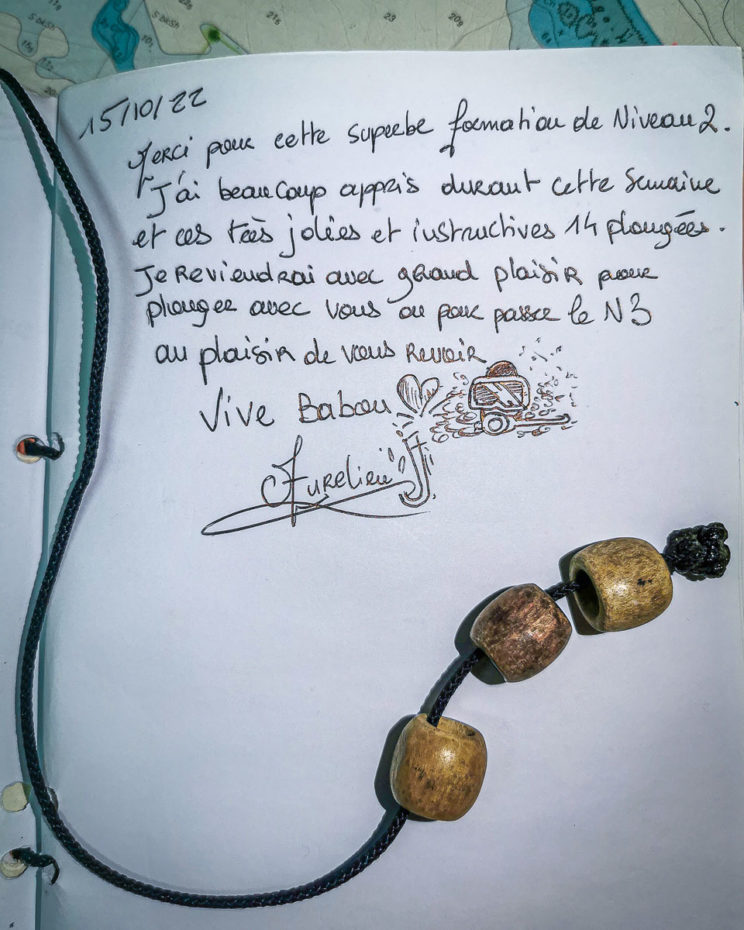 15/10/22
Merci pour cette superbe formation de Niveau 2.
J'ai beaucoup appris durant cette semaine
et ces très jolies et instructives 14 plongées.
Je Reviendrai avec grand plaisir pour
plonger avec vous ou pour passer le N3
au plaisir de vous Revoir
Vive Babou
Aurelien